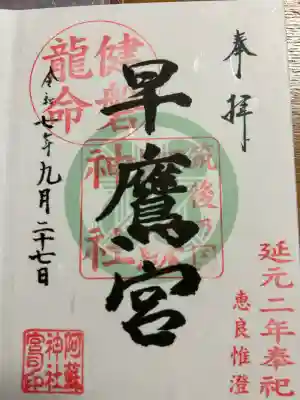 奉拝
延元二年奉祀
恵良惟澄
早鷹宮
健磐
龍命
神社
筑後乃国
令和七年九月二十七日
阿蘇
神社
宮司印